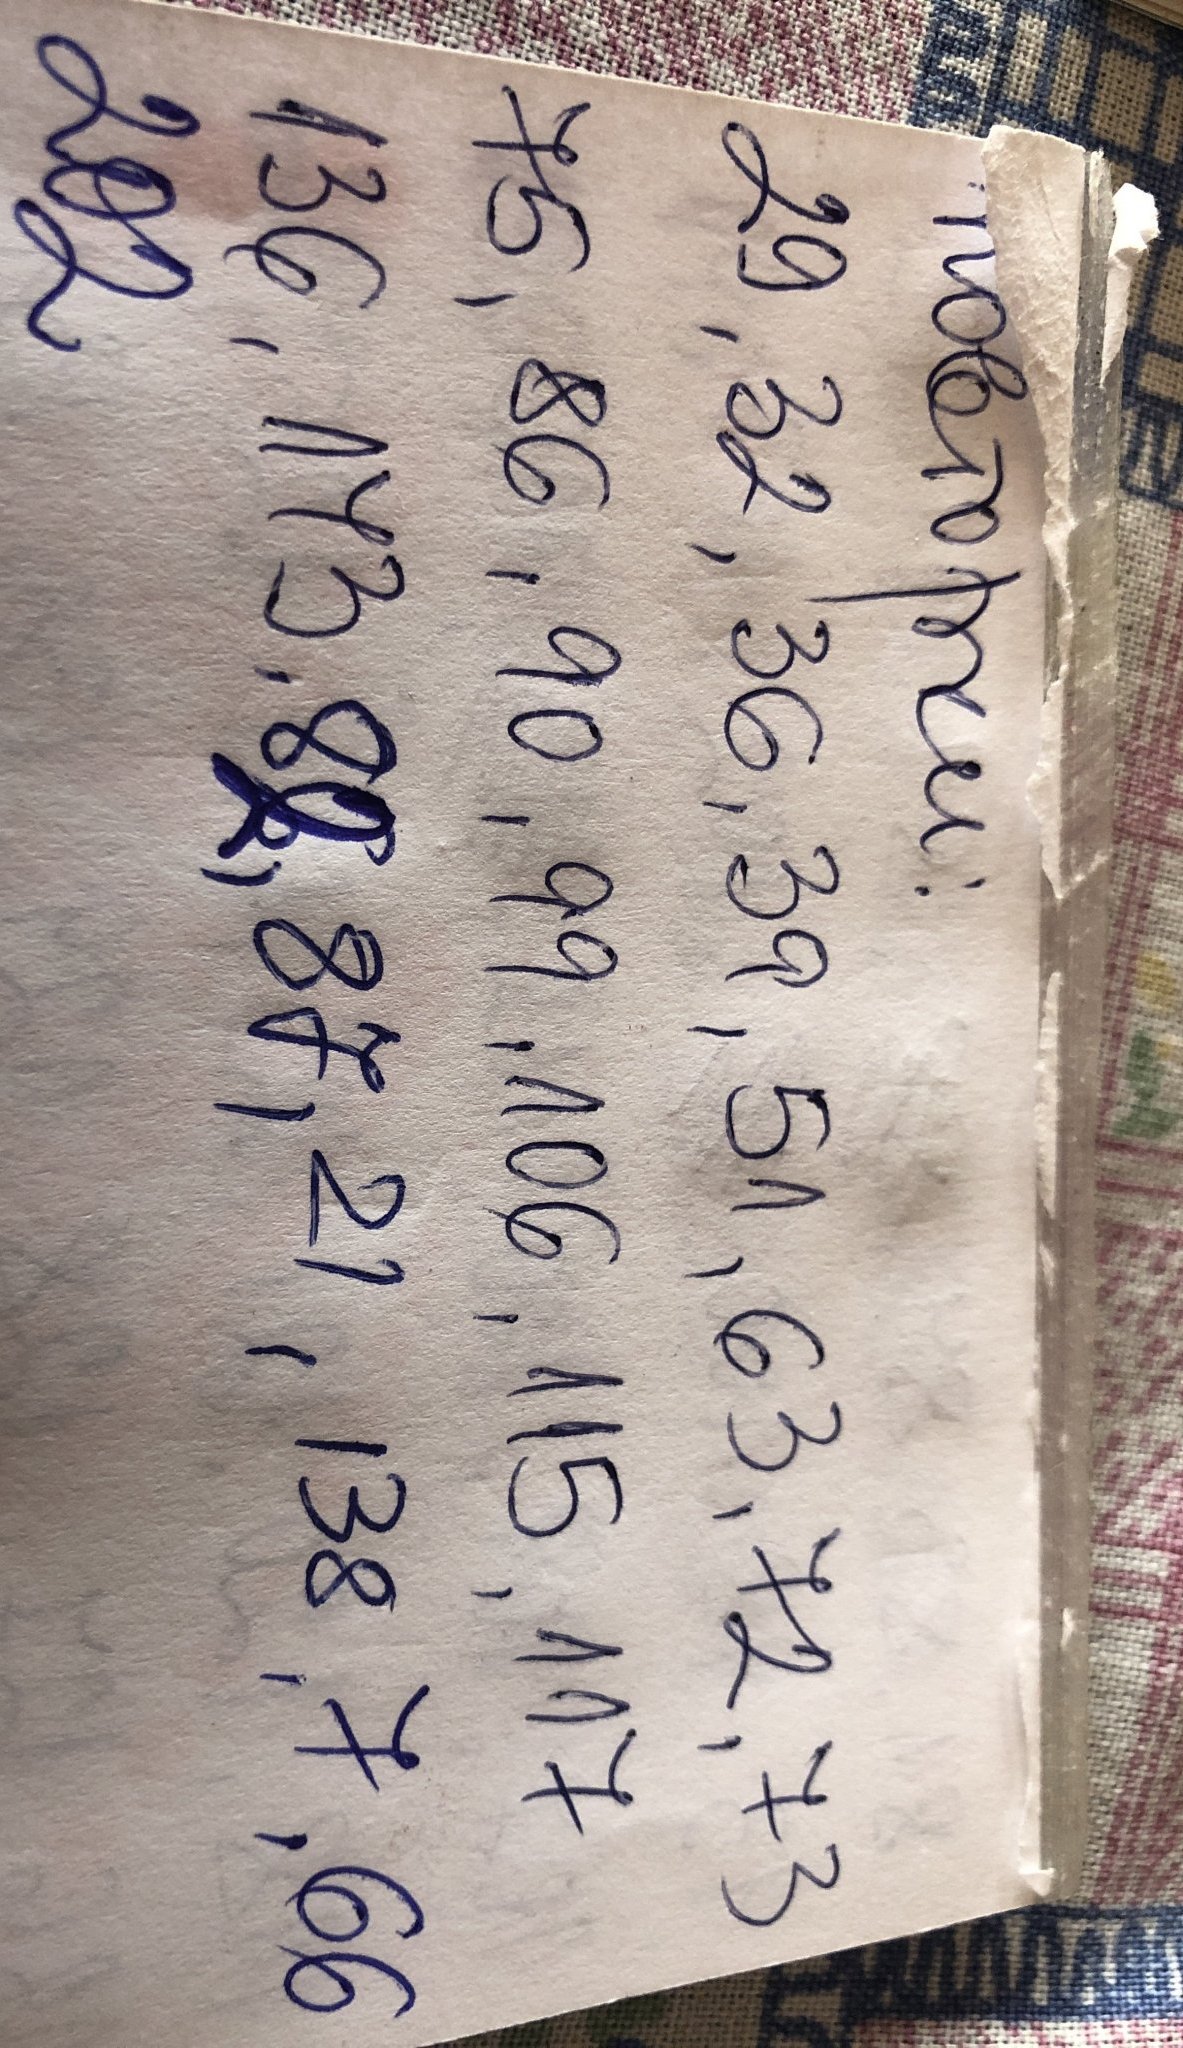 повторки:
29, 32, 36, 39, 51, 63, 72, 73
75, 86, 90, 99, 106, 115, 117
136, 143, 87, 21, 138, 7, 66